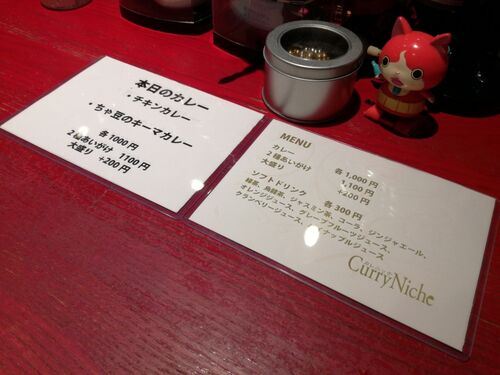 本日のカレー
・チキンカレー
・ちゃ豆のキーマカレー
各1000円
2種あいがけ 1100円
大盛り +200円
MENU
カレー 各1,000円
2種あいがけ 1,100円
大盛り +200円
ソフトドリンク 各300円
緑茶、烏龍茶、ジャスミン茶、コーラ、ジンジャエール、
オレンジジュース、グレープフルーツジュース、
クランベリージュース、パイナップルジュース
CurryNiche